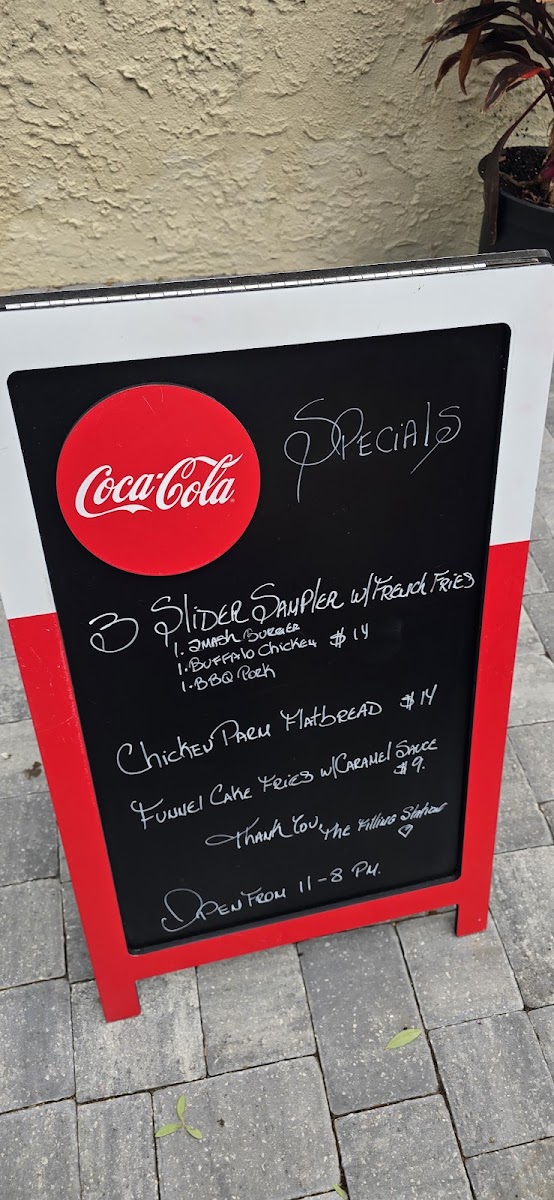 Coca-Cola
Specials
3 Slider Sampler w/French Fries
1. Smash Burger
1. Buffalo Chicken $14
1. BBQ Pork
Chicken Parm Flatbread $14
Funnel Cake Fries w/Caramel Sauce
$9.
Thank You, The Filling Station
Open From 11-8 PM.